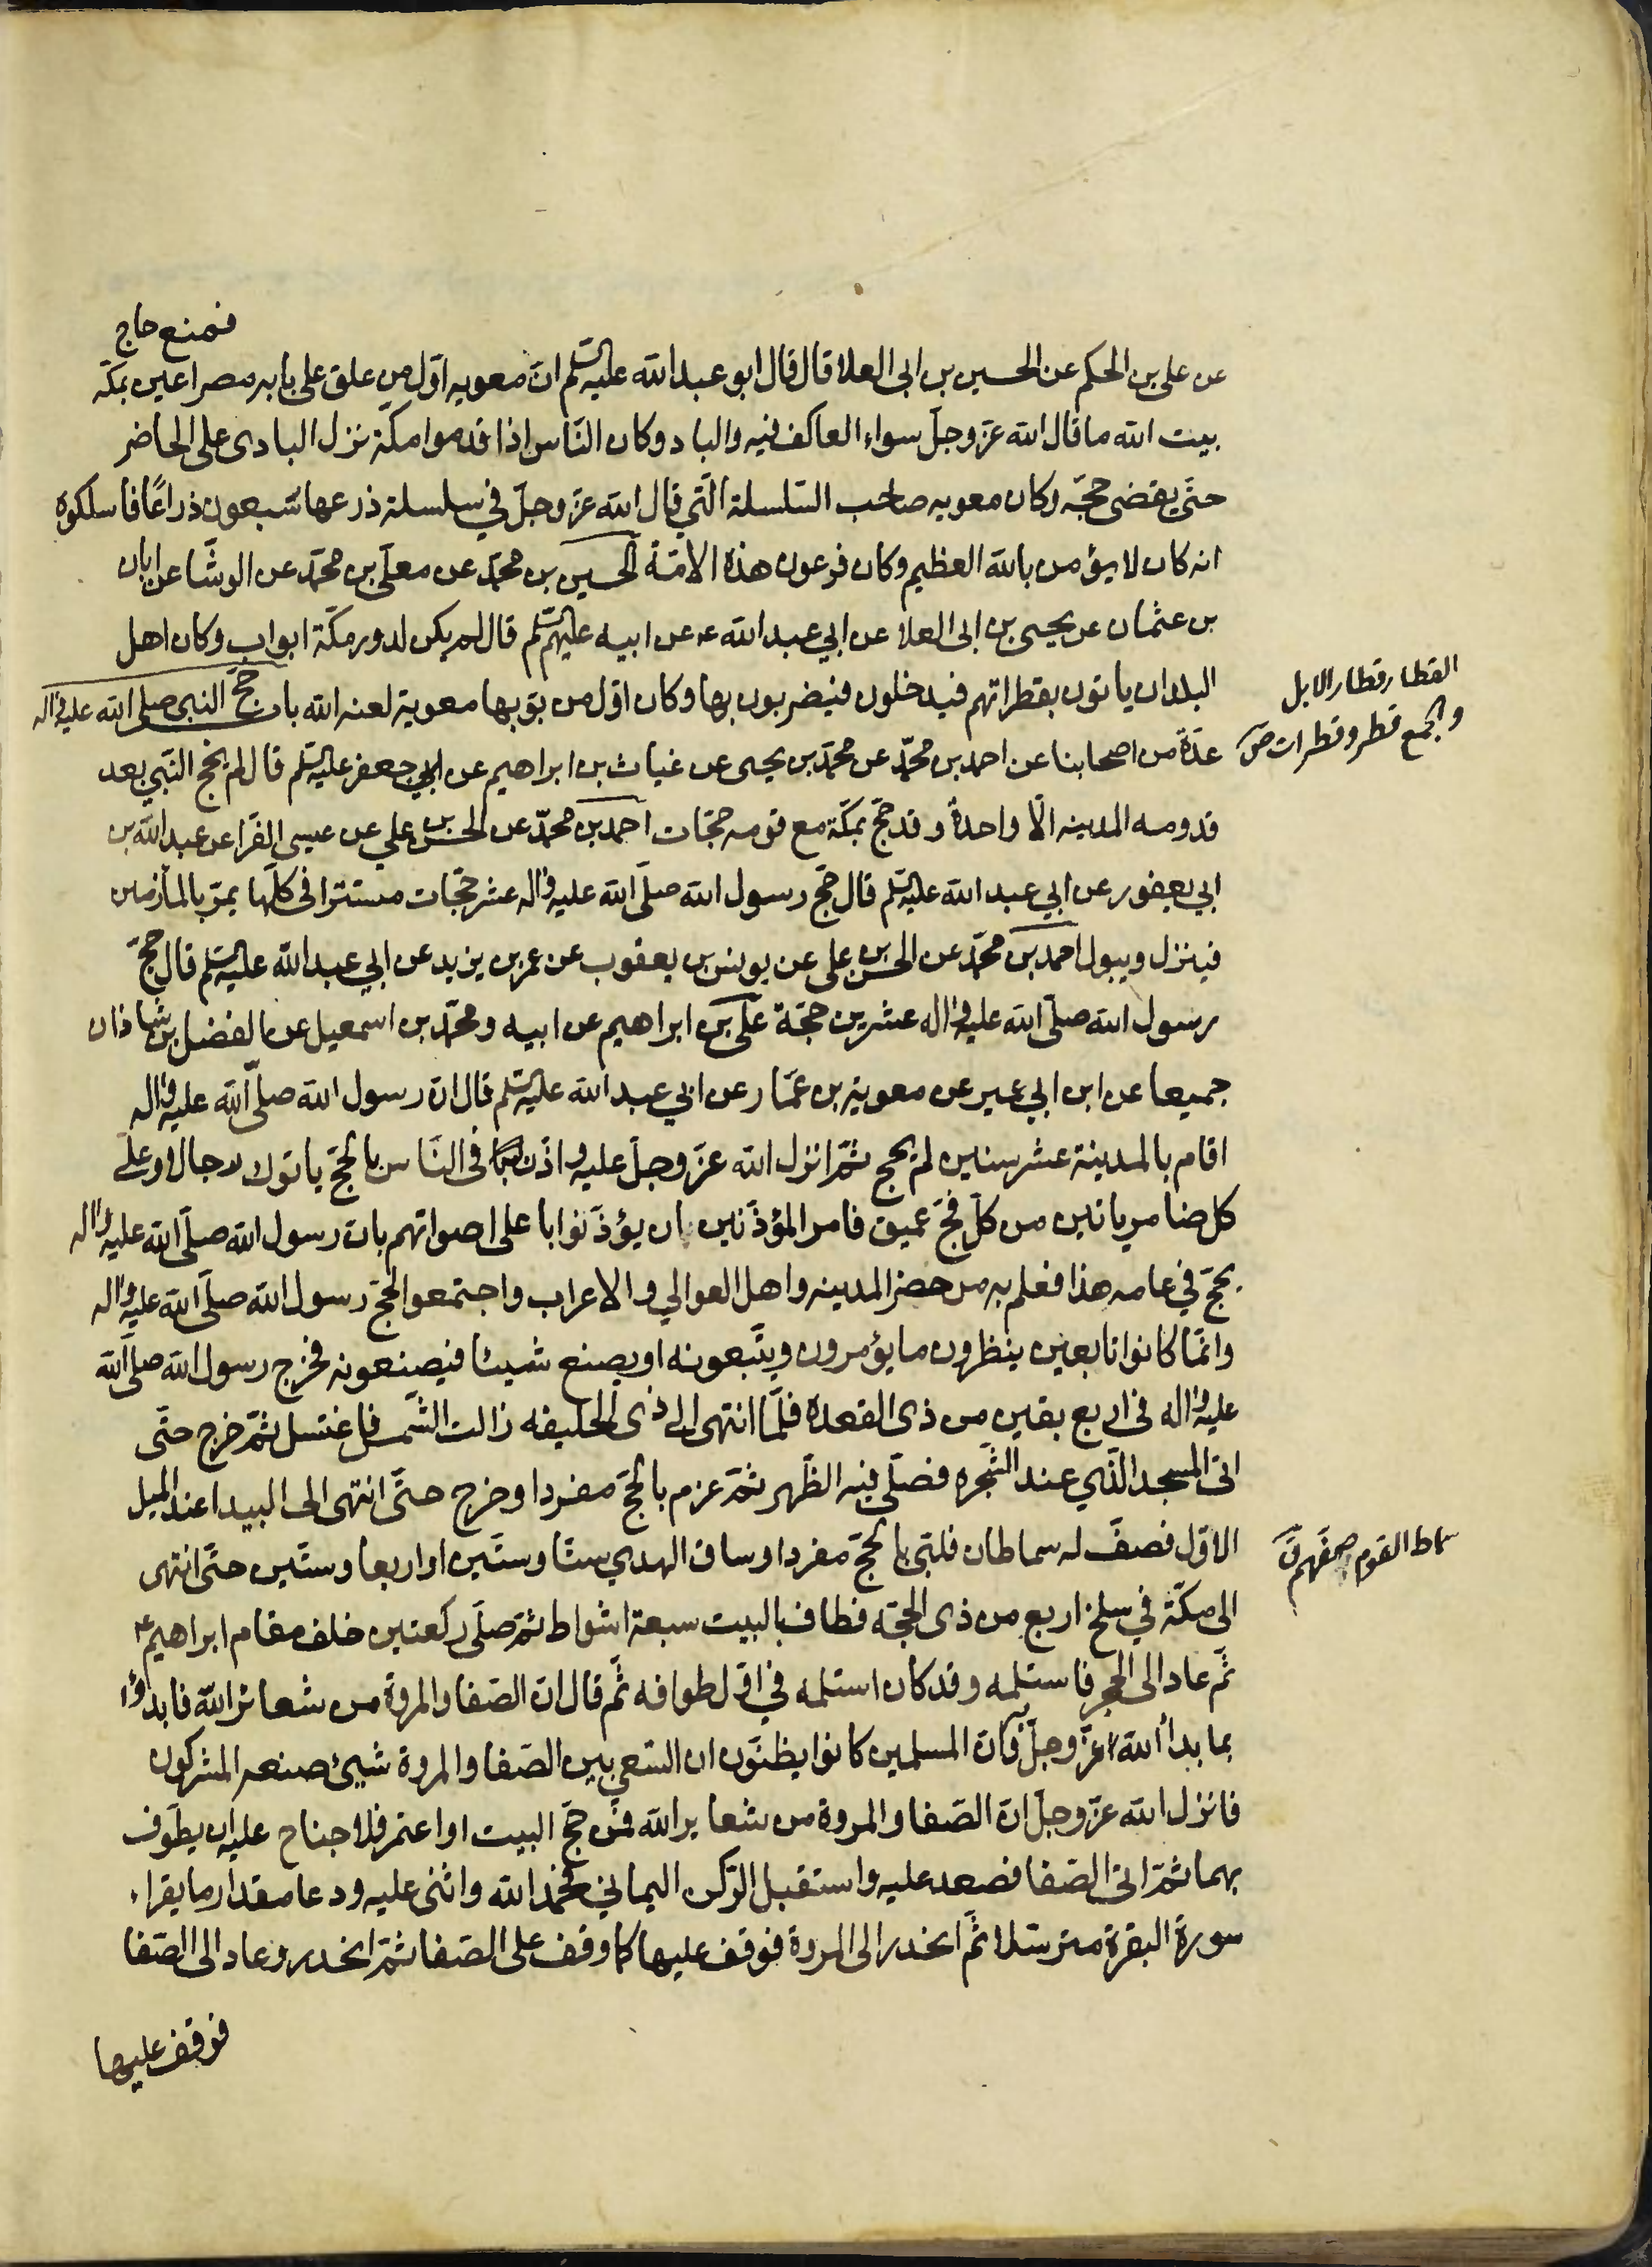 فمنع حاج
عن على بن الحكم عن الحسين بن ابى العلا قال قال ابو عبد الله عليه السلم ان معويه اول من علق على بابه مصراعين بمكة
بيت الله ما قال الله عز وجل سواء العاكف فيه والباد وكان الناس اذا قدموا مكة نزل البادى على الحاضر
حتى يقضى حجه وكان معويه صاحب السلسلة التي قال الله عز وجل في سلسلة ذرعها سبعون ذراعًا فاسلكوه
انه كان لا يؤمن بالله العظيم وكان فرعون هذه الامة الحسين بن محمد عن معلى بن محمد عن الوشا عن ابان
بن عثمان عن يحيى بن ابى العلا عن ابي عبد الله عن ابيه عليهم السلم قال لم يكن لدور مكة ابواب وكان اهل
البلدان ياتون بقطراتهم فيدخلون فيضربون بها وكان اول من بوبها معوية لعنه الله باب حج النبى صلى الله عليه واله
القطار قطار الابل
والجمع قطر وقطرات ص
عدة من اصحابنا عن احمد بن محمد عن محمد بن يحيى عن غياث بن ابراهيم عن ابي جعفر عليه السلم قال لم يحج النبي بعد
قدومه المدينه الا واحدة وقد حج بمكة مع قومه حجات احمد بن محمد عن الحسن بن علي عن عيسى الفرا عن عبد الله بن
ابي يعفور عن ابي عبد الله عليه السلم قال حج رسول الله صلى الله عليه واله عشر حجات مستترا فى كلها يمر بالمأزمين
فينزل ويبول احمد بن محمد عن الحسن بن على عن يونس بن يعقوب عن عمر بن يزيد عن ابي عبد الله عليه السلم قال حج
رسول الله صلى الله عليه واله عشرين حجة على بن ابراهيم عن ابيه ومحمد بن اسمعيل عن الفضل بن شاذان
جميعا عن ابن ابي عمير عن معوية بن عمار عن ابي عبد الله عليه السلم قال ان رسول الله صلى الله عليه واله
اقام بالمدينة عشر سنين لم يحج ثم انزل الله عز وجل عليه واذن فى الناس بالحج ياتوك رجالا وعلى
كل ضامر ياتين من كل فج عميق فامر المؤذنين ان يؤذنوا باعلى اصواتهم بان رسول الله صلى الله عليه واله
يحج في عامه هذا فعلم به من حضر المدينه واهل العوالي والاعراب واجتمعوا لحج رسول الله صلى الله عليه واله
وانما كانوا تابعين ينظرون ما يؤمرون ويتبعونه او يصنع شيئا فيصنعونه فخرج رسول الله صلى الله
عليه واله فى اربع بقين من ذى القعدة فلما انتهى الى ذى الحليفه زالت الشمس فاغتسل ثم خرج حتى
اتى المسجد الذي عند الشجره فصلى فيه الظهر ثم عزم بالحج مفردا وخرج حتى انتهى الى البيدا عند الميل
الاول فصف له سماطان فلبى بالحج مفردا وساق الهدي ستا وستين او اربعا وستين حتى انتهى
سماط القوم صفهم ق
الى مكة في سلخ اربع من ذى الحجة فطاف بالبيت سبعة اشواط ثم صلى ركعتين خلف مقام ابراهيم ع
ثم عاد الى الحجر فاستلمه وقد كان استلمه في اول طوافه ثم قال ان الصفا والمروة من شعائر الله فابدؤا
بما بدأ الله عز وجل به وان المسلمين كانوا يظنون ان السعي بين الصفا والمروة شيئ صنعه المشركون
فانزل الله عز وجل ان الصفا والمروة من شعاير الله فمن حج البيت او اعتمر فلا جناح عليه ان يطوف
بهما ثم اتى الصفا فصعد عليه واستقبل الركن اليماني فحمد الله واثنى عليه ودعا مقدار ما يقراء
سورة البقرة مترسلا ثم انحدر الى المروة فوقف عليها كما وقف على الصفا ثم انحدر وعاد الى الصفا
فوقف عليها